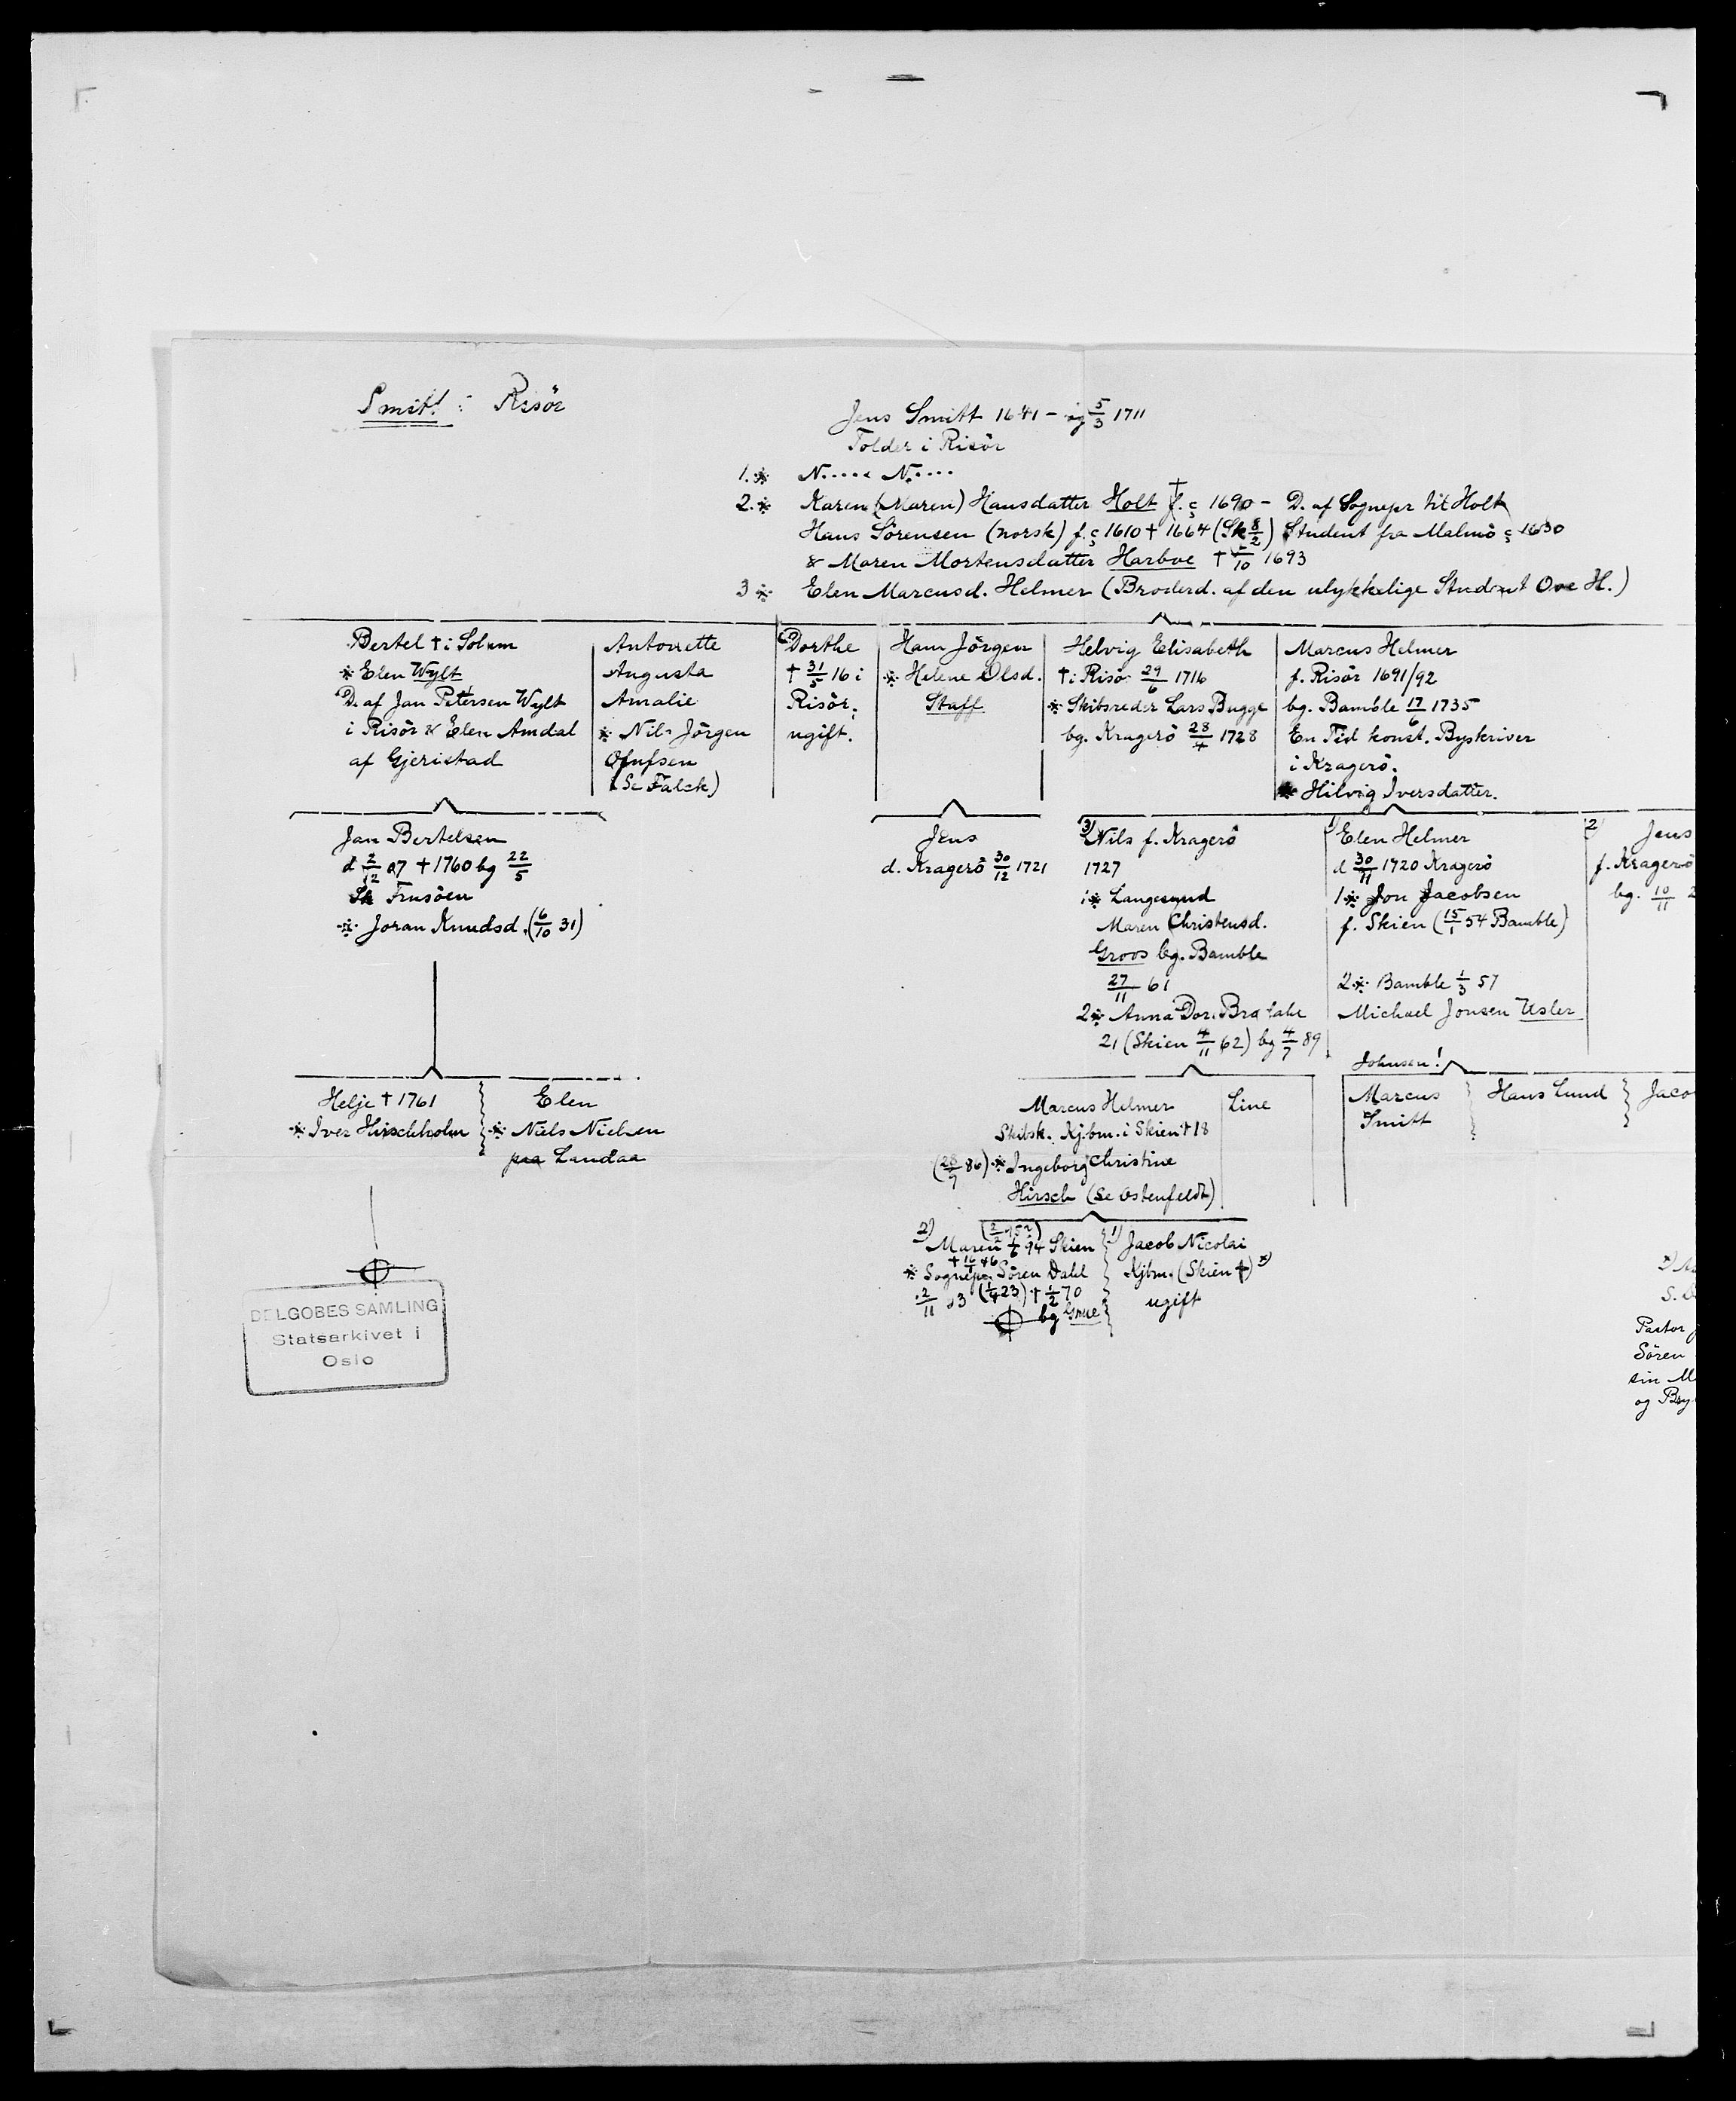 Smitt : Risör
Jens Smitt 1641 - bg 5/3 1711
Tolder i Risör
1. ※ N..... N.....
2. ※ Karen (Maren) Hansdatter Holt † f. ç 1690 - D. af Sognepr til Holt
Hans Sörensen (norsk) f. ç 1610 † 1664 (Sk 8/2) Student fra Malmö ç 1630
& Maren Mortensdatter Harboe † /10 1693
3 ※ Elen Marcusd. Helmer (Broderd. af den ulykkelige Student Ove H.)
Bertel † i Solum
※ Elen Wylt
D. af Jan Petersen Wylt
i Risör & Elen Amdal
af Gjeristad
Antoinette
Augusta
Amalie
※ Nils Jörgen
Olufsen
(Se Falck)
Dorthe
† 31/5 16 i
Risör.
ugift.
Hans Jörgen
※ Helene Olsd.
Staff
Helvig Elisabeth
† i Risö 29/6 1716
※ Skibsreder Lars Bugge
bg. Kragerö 28/4 1728
Marcus Helmer
f. Risör 1691/92
bg. Bamble 17/6 1735
En Tid konst. Byskriver
i Kragerö.
※ Hilvig Iversdatter.
Jan Bertelsen
d 2/12 07 † 1760 bg 22/5
Sk Frusöen
※ Joran Knudsd. (6/10 31)
Jens
d. Kragerö 30/12 1721
3) Nils f. Kragerö
1727
1 ※ Langesund
Maren Christensd.
Groos bg. Bamble
27/11 61
2 ※ Anna Dor.
21 (Skien 4/11 62) bg 4/7 89
1) Elen Helmer
d 30/11 1720 Kragerö
1 ※ Jon Jacobsen
f. Skien (15/1 54 Bamble)
2 ※ Bamble 1/3 57
Michael Jonsen Usler
Johnsen!
2) Jens
f. Kragerö
bg. 10/11 2
Helje † 1761
※ Iver Hirschholm
Elen
※ Niels Nielsen
paa Landaa
Marcus Helmer
Skibsk. Kjbm. i Skien † 18
(28/7 86) ※ Ingeborg Christine
Hirsch (Se Ostenfeldt)
Line
Marcus
Smitt
Hans Lund
Jaco
2) Maren 94 Skien
† 16/1 46
※ Sognepr. Sören Dahl
2/11 (1/4 23) † 1/2 70
bg
1) Jacob Nicolai
Kjbm. (Skien †) ※)
ugift
Pastor
Sören
sin M
og Bry
DELGOBES SAMLING
Statsarkivet i
Oslo